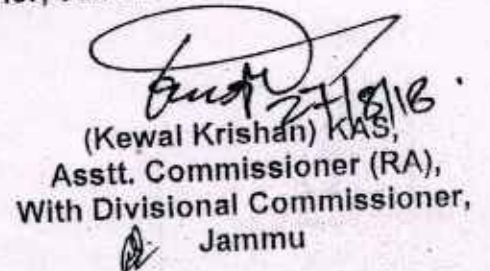 27/8/18.
(Kewal Krishan) KAS,
Asstt. Commissioner (RA),
With Divisional Commissioner,
Jammu